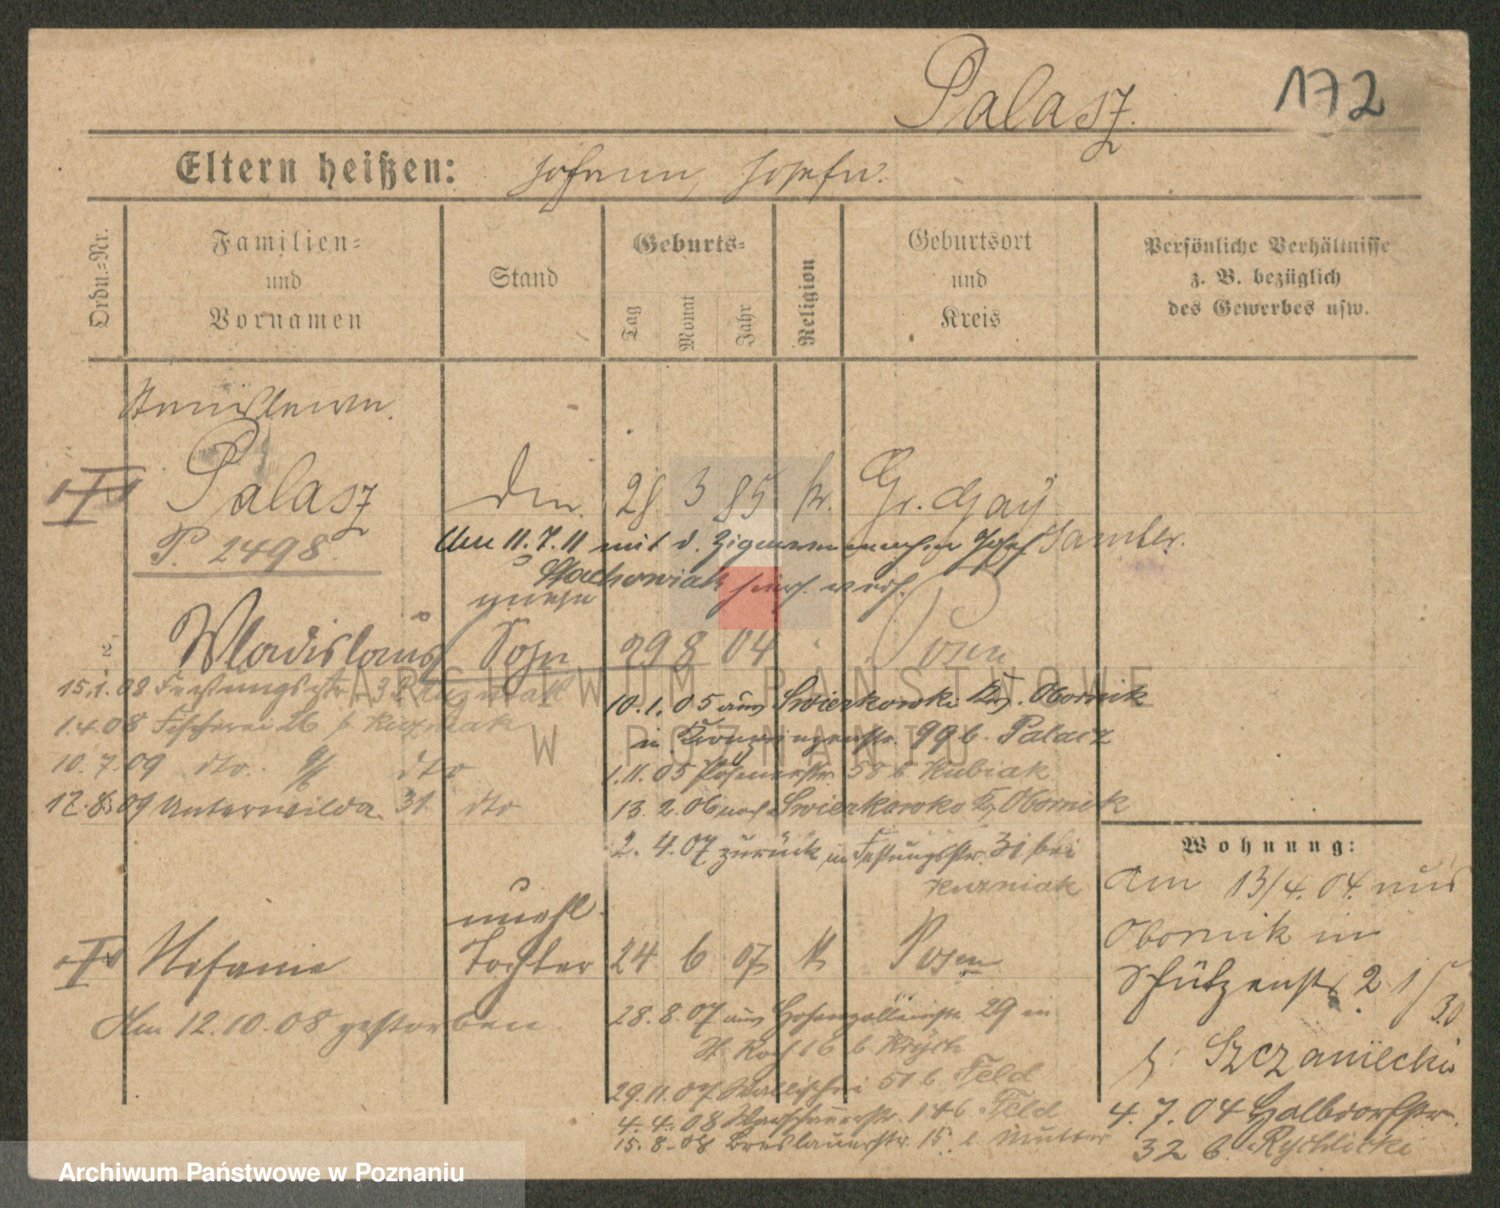 Palasz.
172
Eltern heißen: Johann, Josefa.
Ordn.=Nr.
Familien=
und
Vornamen
Stand
Geburts=
Tag
Monat
Jahr
Religion
Geburtsort
und
Kreis
Persönliche Verhältnisse
z. B. bezüglich
des Gewerbes usw.
Stanislawa.
Palasz
28 3 85 Gr. Gay
Samter.
P. 2498.
Am 11.7.11 mit d. Zigarrenmacher Josef
Stachowiak hier verh.
unehe
Wladislaus Sohn 29 8 04 " Posen
15.1.08 Festungsstr. 31
1.4.08 Fischerei 26 Kuzniak
10.7.09 dto. dto
12.8.09 Unterwilda 31 dto
10.1.05 aus Swierkowki Kr. Obornik
in Kronprinzenstr. 99 b. Palacz
1.11.05 Posenerstr. 58 b Kubiak
13.2.06 nach Swierkowko Kr. Obornik
2.4.07 zurück in Festungsstr. 31 bei
Kuzniak
unehl.
Stefanie Tochter 24 6 07 k Posen
Am 12.10.08 gestorben
28.8.07 aus Hohenzollernstr. 29 in
16 b
29.11.07 Wallischei 51 b. Feld
4.4.08 Warschauerstr. 14 b Feld
15.8.08 Breslauerstr. 15. Mutter
Wohnung:
Am 13/4.04. aus
Obornik in
Schützenstr. 21
30
b: Szczaniecki
4.7.04 Halbdorfstr.
32 b. Rychlicki
ARCHIWUM PAŃSTWOWE
W POZNANIU
Archiwum Państwowe w Poznaniu